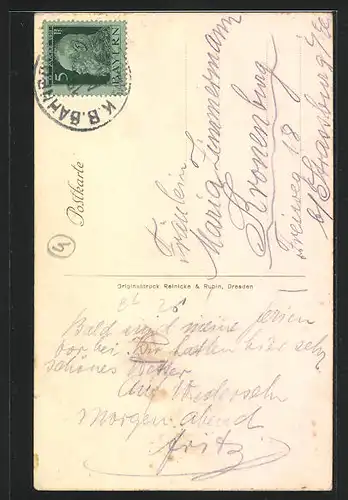 5 Pf
BAYERN
K.B.BAHNP
Postkarte
Fräulein
Maria Zimmermann
Kronenburg
Freiweg 18
b/ Strassburg i/E
4
Originaldruck Reinicke & Rubin, Dresden
Bald sind meine Ferien
vorbei. Wir hatten hier sehr
schönes Wetter
Auf Wiedersehn
Morgen abend
Fritz